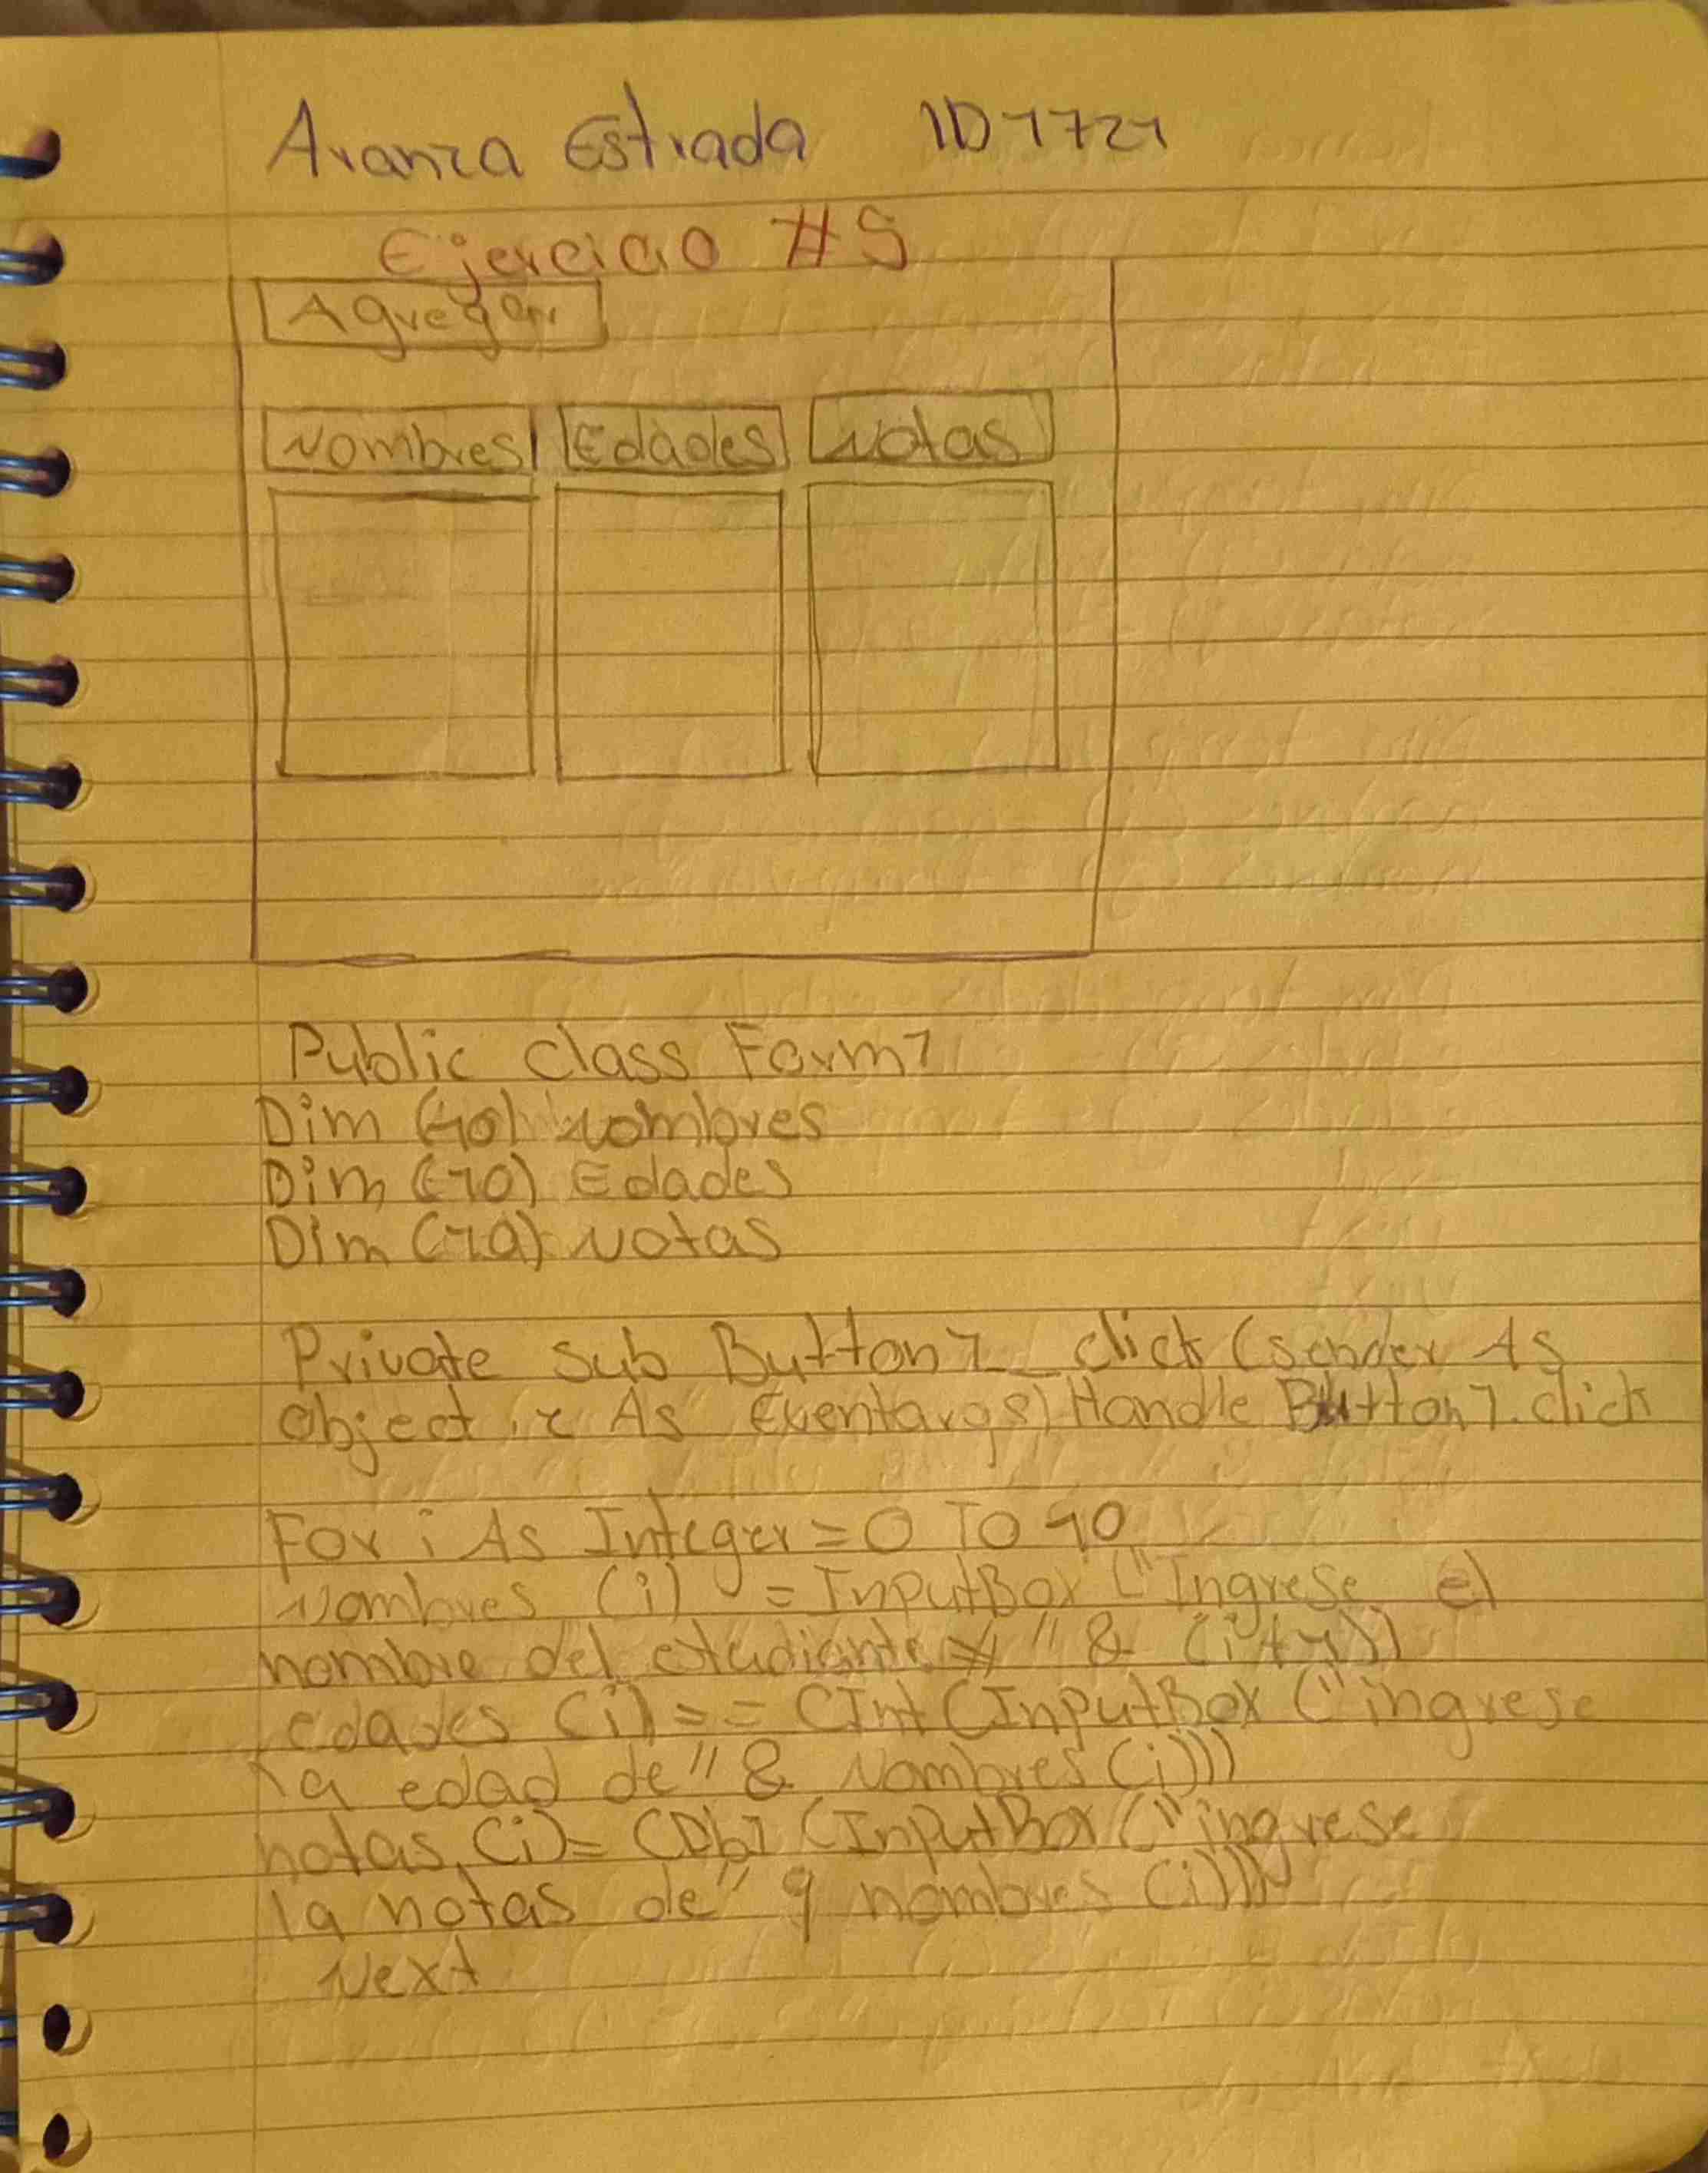 Aranza Estrada ID 1721
Ejercicio #5
Agregar
Nombres Edades Notas
Public class Form1
Dim (10) Nombres
Dim (10) Edades
Dim (10) Notas
Private sub Button1_click (sender As
object, e As Eventargs) Handle Button1.click
For i As Integer = 0 To 10
Nombres (i) = InputBox ("Ingrese el
nombre del estudiante # " & (i+1))
edades (i) = = CInt (InputBox ("ingrese
la edad de" & Nombres (i)))
notas (i) = CDbl (InputBox ("ingrese
la notas de" & nombres (i)))
Next